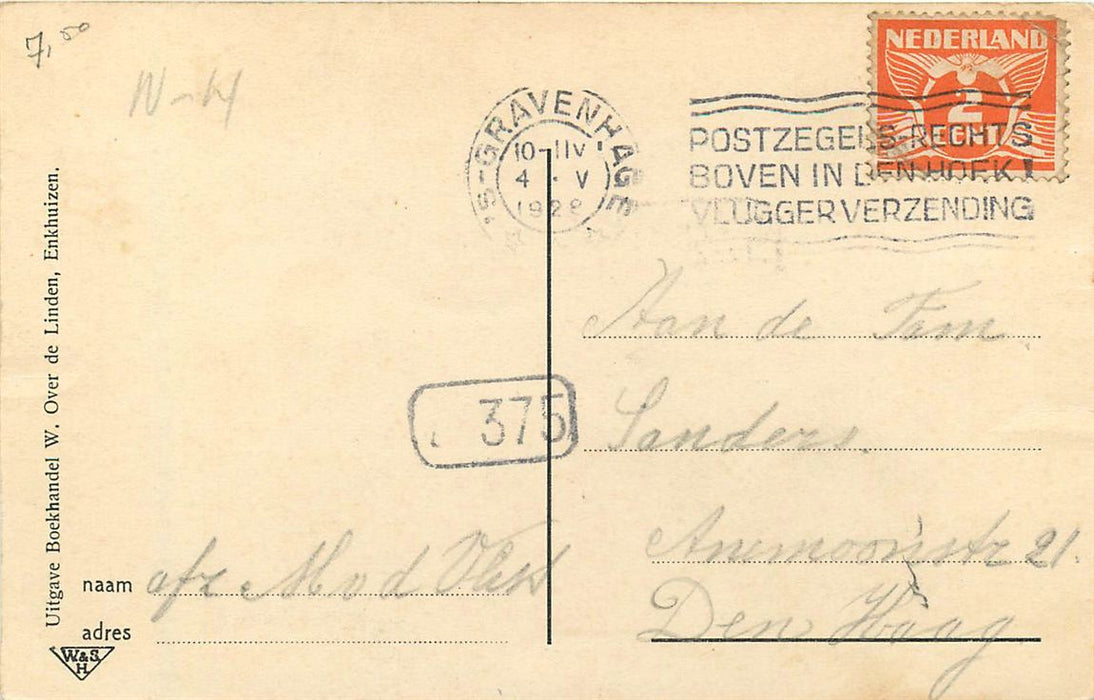 7,50
N-H
'S-GRAVENHAGE
10-11V
4 · V
1928
NEDERLAND
2
CENT
POSTZEGELS-RECHTS
BOVEN IN DEN HOEK!
VLUGGER VERZENDING
Aan de Fam
Sanders.
Anemoonstr 21.
Den Haag
375
Uitgave Boekhandel W. Over de Linden, Enkhuizen.
naam afz M v d Vlist
adres
W&S
H